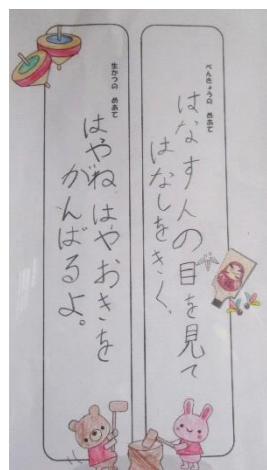 べんきょうの めあて
はなす人の目を見て
はなしをきく。
生かつの めあて
はやねはやおきを
がんばるよ。